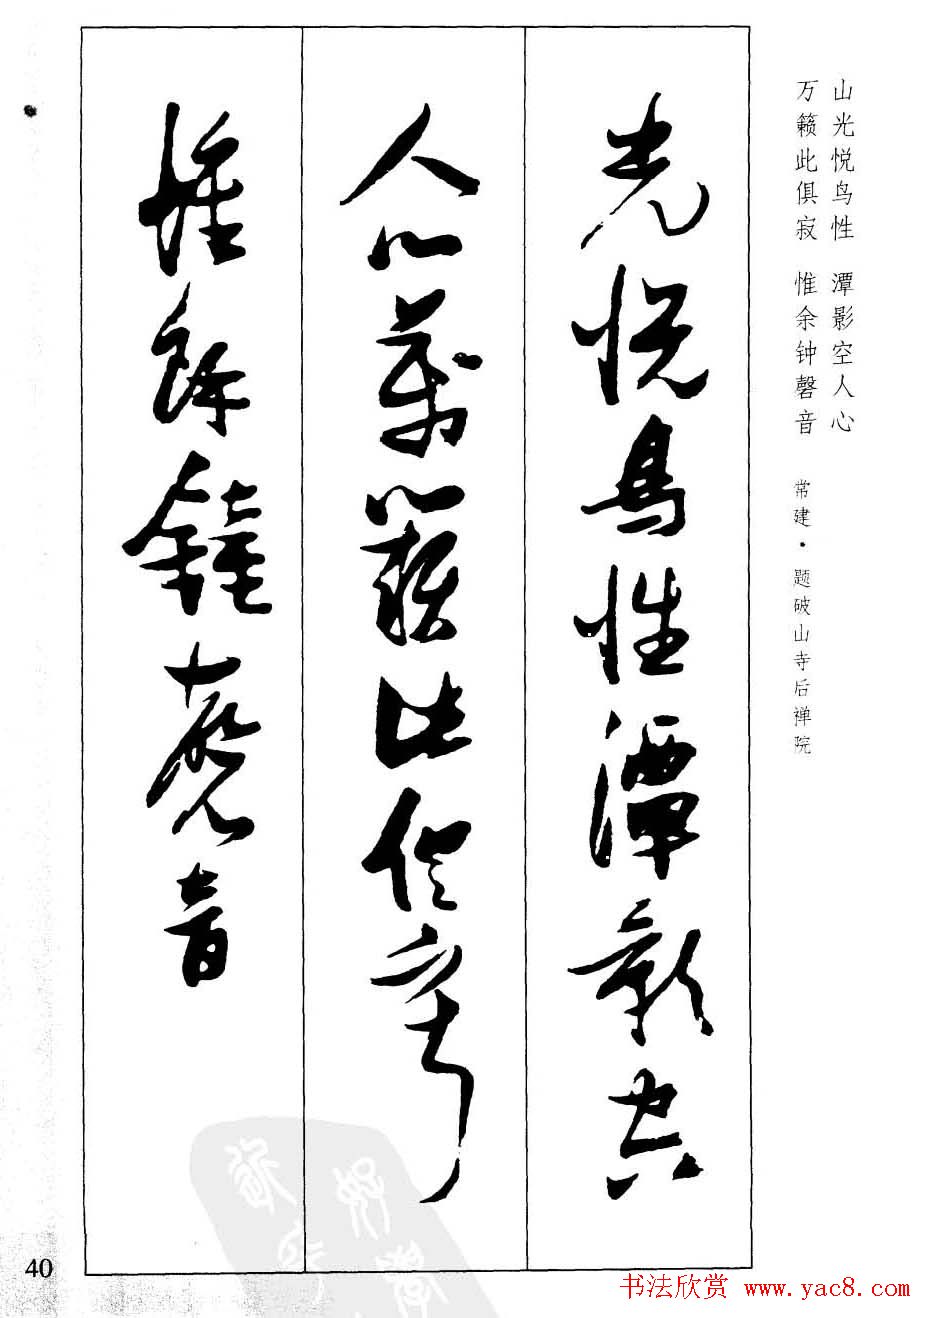 光悦鳥性潭影空
人心萬籟此俱寂
惟餘鐘磬音
山光悦鸟性 潭影空人心
万籁此俱寂 惟余钟磬音
常建·题破山寺后禅院
40
书法欣赏 www.yac8.com